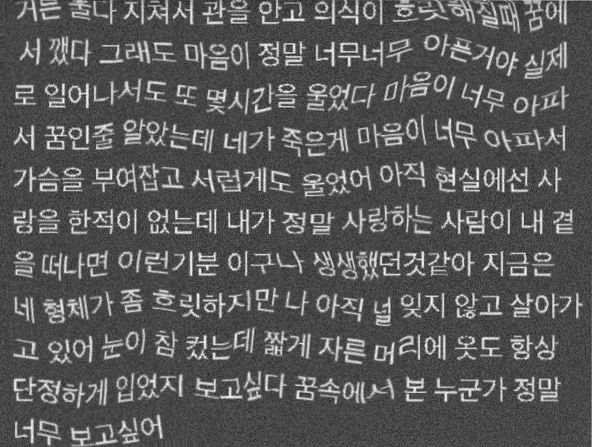 거든 울다 지쳐서 관을 안고 의식이 흐릿해질때 꿈에
서 깼다 그래도 마음이 정말 너무너무 아픈거야 실제
로 일어나서도 또 몇시간을 울었다 마음이 너무 아파
서 꿈인줄 알았는데 네가 죽은게 마음이 너무 아파서
가슴을 부여잡고 서럽게도 울었어 아직 현실에선 사
랑을 한적이 없는데 내가 정말 사랑하는 사람이 내 곁
을 떠나면 이런기분 이구나 생생했던것같아 지금은
네 형체가 좀 흐릿하지만 나 아직 널 잊지 않고 살아가
고 있어 눈이 참 컸는데 짧게 자른 머리에 옷도 항상
단정하게 입었지 보고싶다 꿈속에서 본 누군가 정말
너무 보고싶어